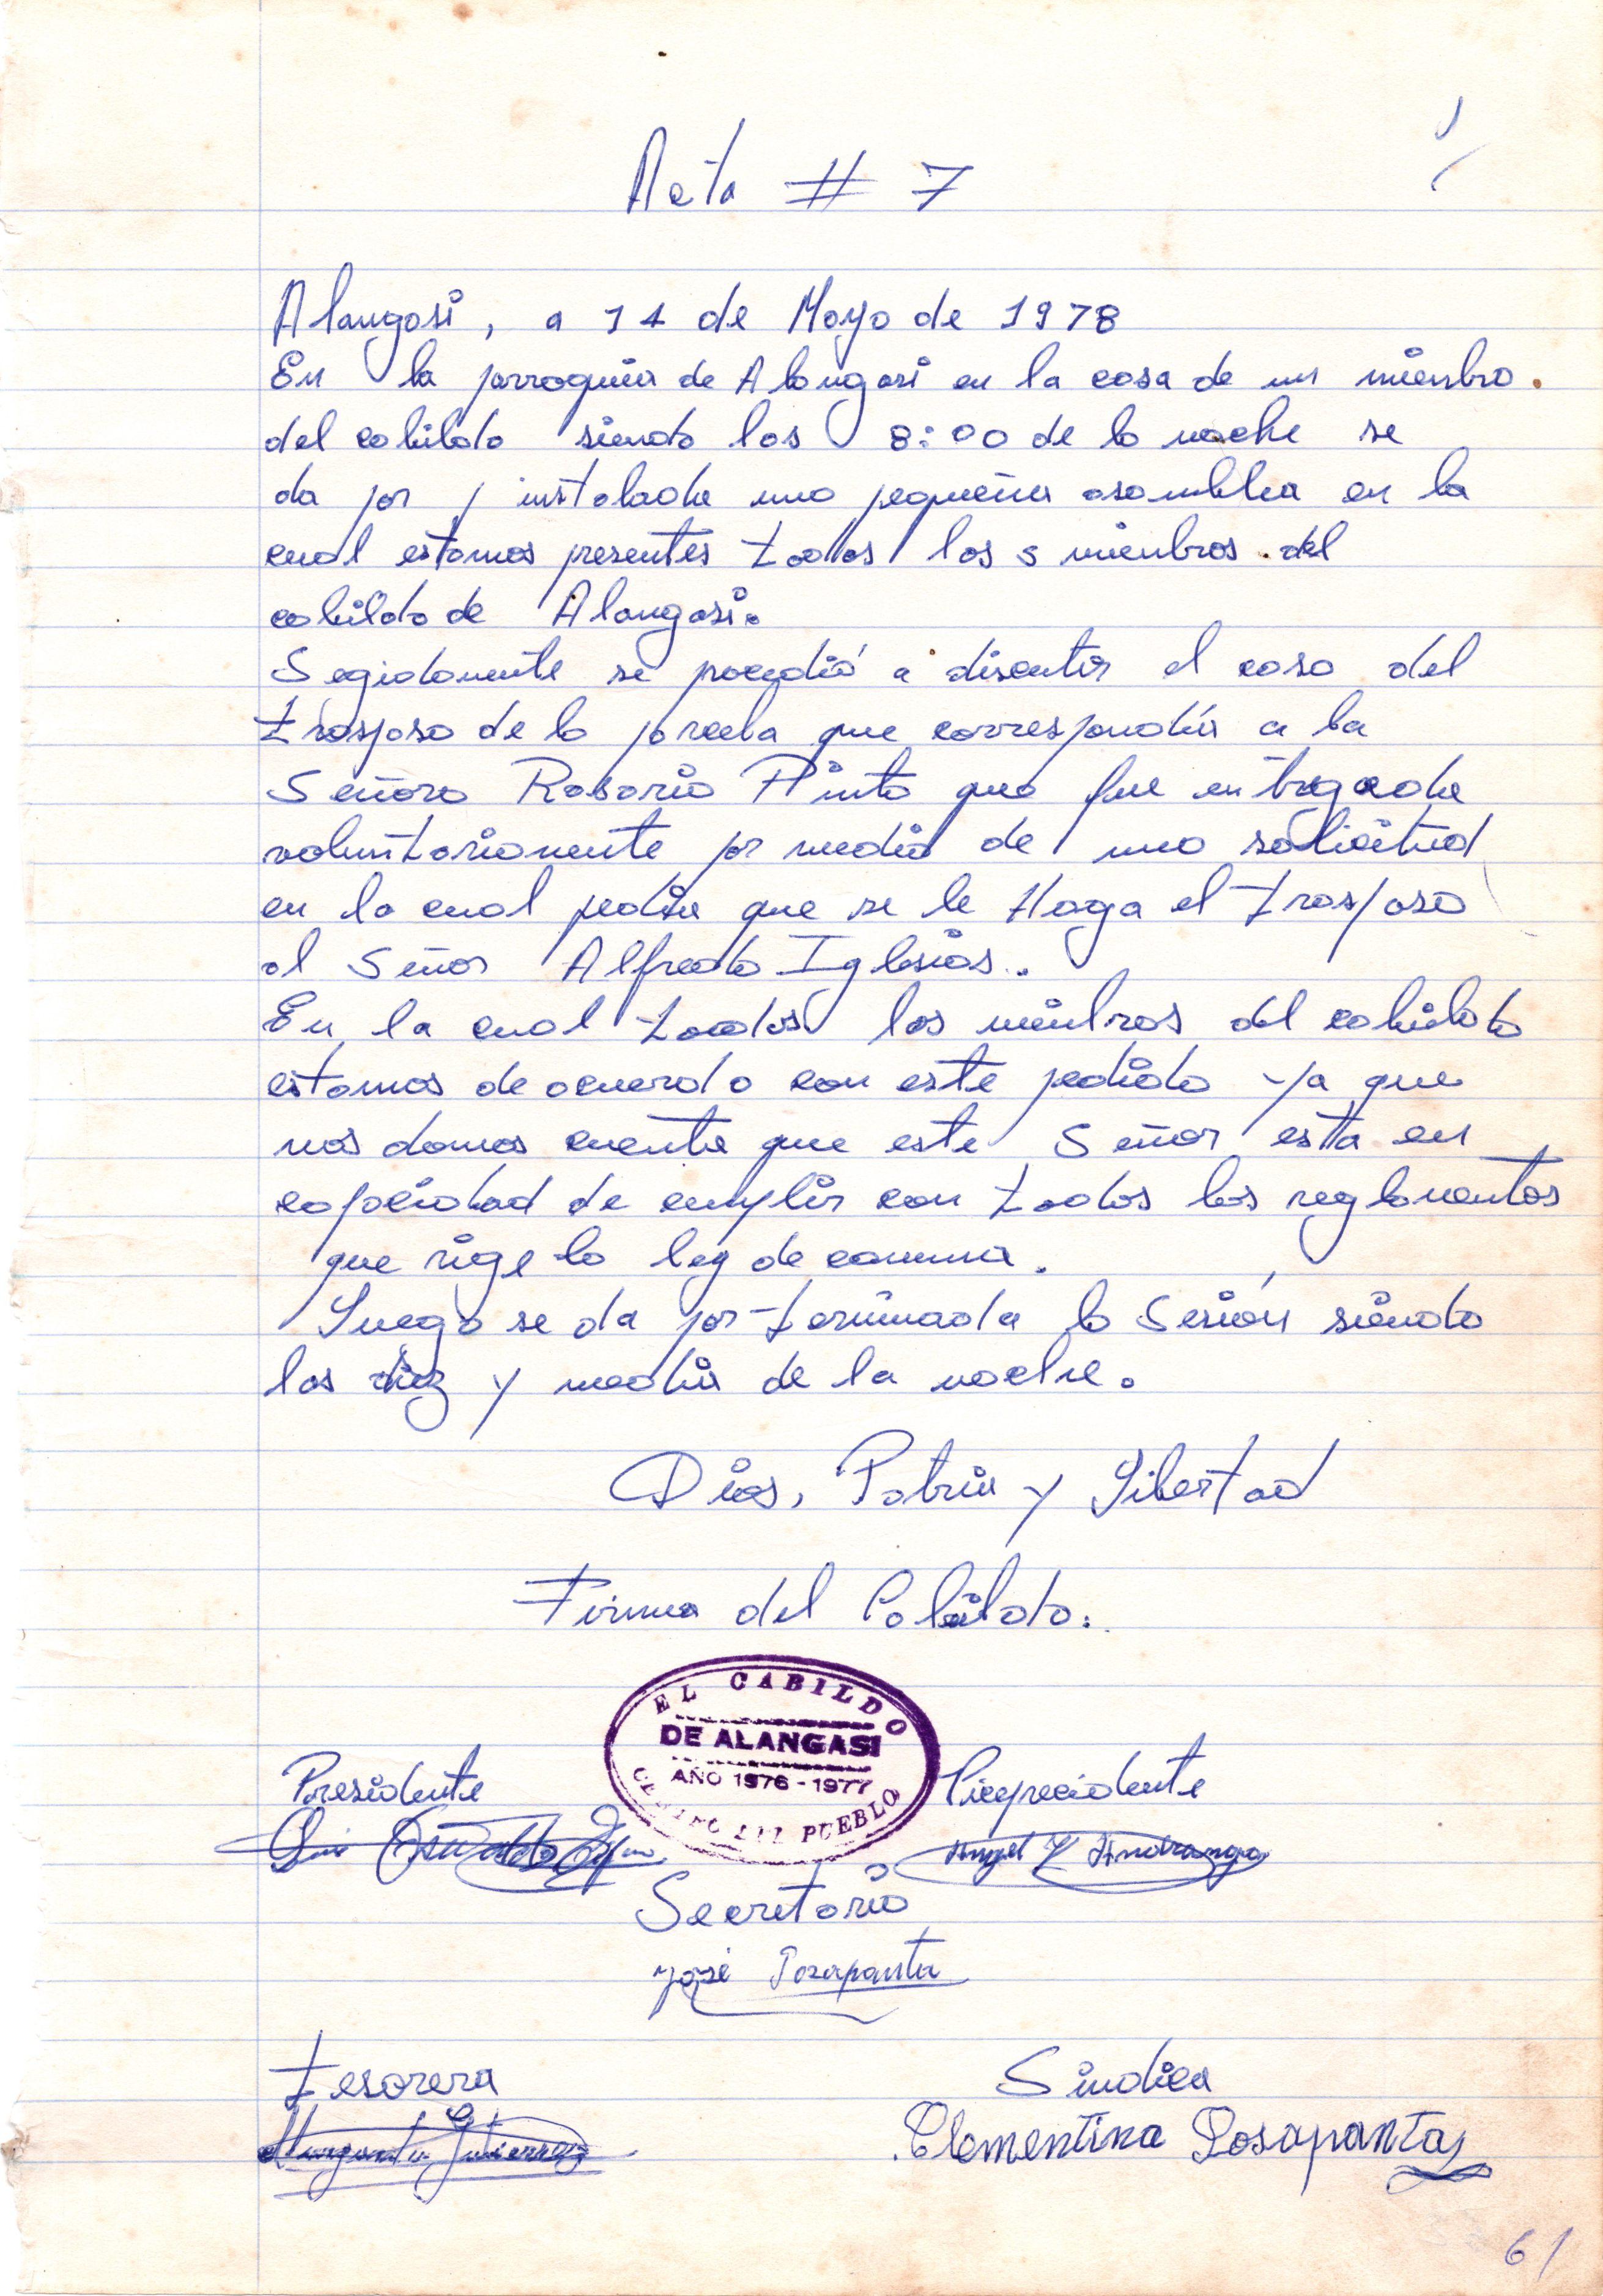 Acta # 7
Alangasi, a 14 de Mayo de 1978
En la parroquia de Alangasi en la casa de un miembro.
del cabildo siendo las 8:00 de la noche se
da por instalada una pequeña asamblea en la
cual estamos presentes todos los 5 miembros del
cabildo de Alangasi.
Segidamente se procedió a discutir el caso del
traspaso de la parcela que correspondia a la
Señora Rosario Pinto que fue entregada
voluntariamente por medio de una solicitud
en la cual pedia que se le Haga el traspaso
al Señor Alfredo Iglesias.
En la cual todos los miembros del cabildo
estamos de acuerdo con este pedido ya que
nos damos cuenta que este Señor esta en
capacidad de cumplir con todos los reglamentos
que rige la ley de comuna.
Luego se da por terminada la Sesión siendo
las diez y media de la noche.
Dios, Patria y Libertad
Firma del Cabildo.
EL CABILDO
DE ALANGASI
AÑO 1976 - 1977
DEL PUEBLO
Presidente
Vicepresidente
Luis Oswaldo
Angel Andrango
Secretario
José Tosapanta
Tesorera
Sindica
Margarita Gutierrez
Clementina Losapanta
61